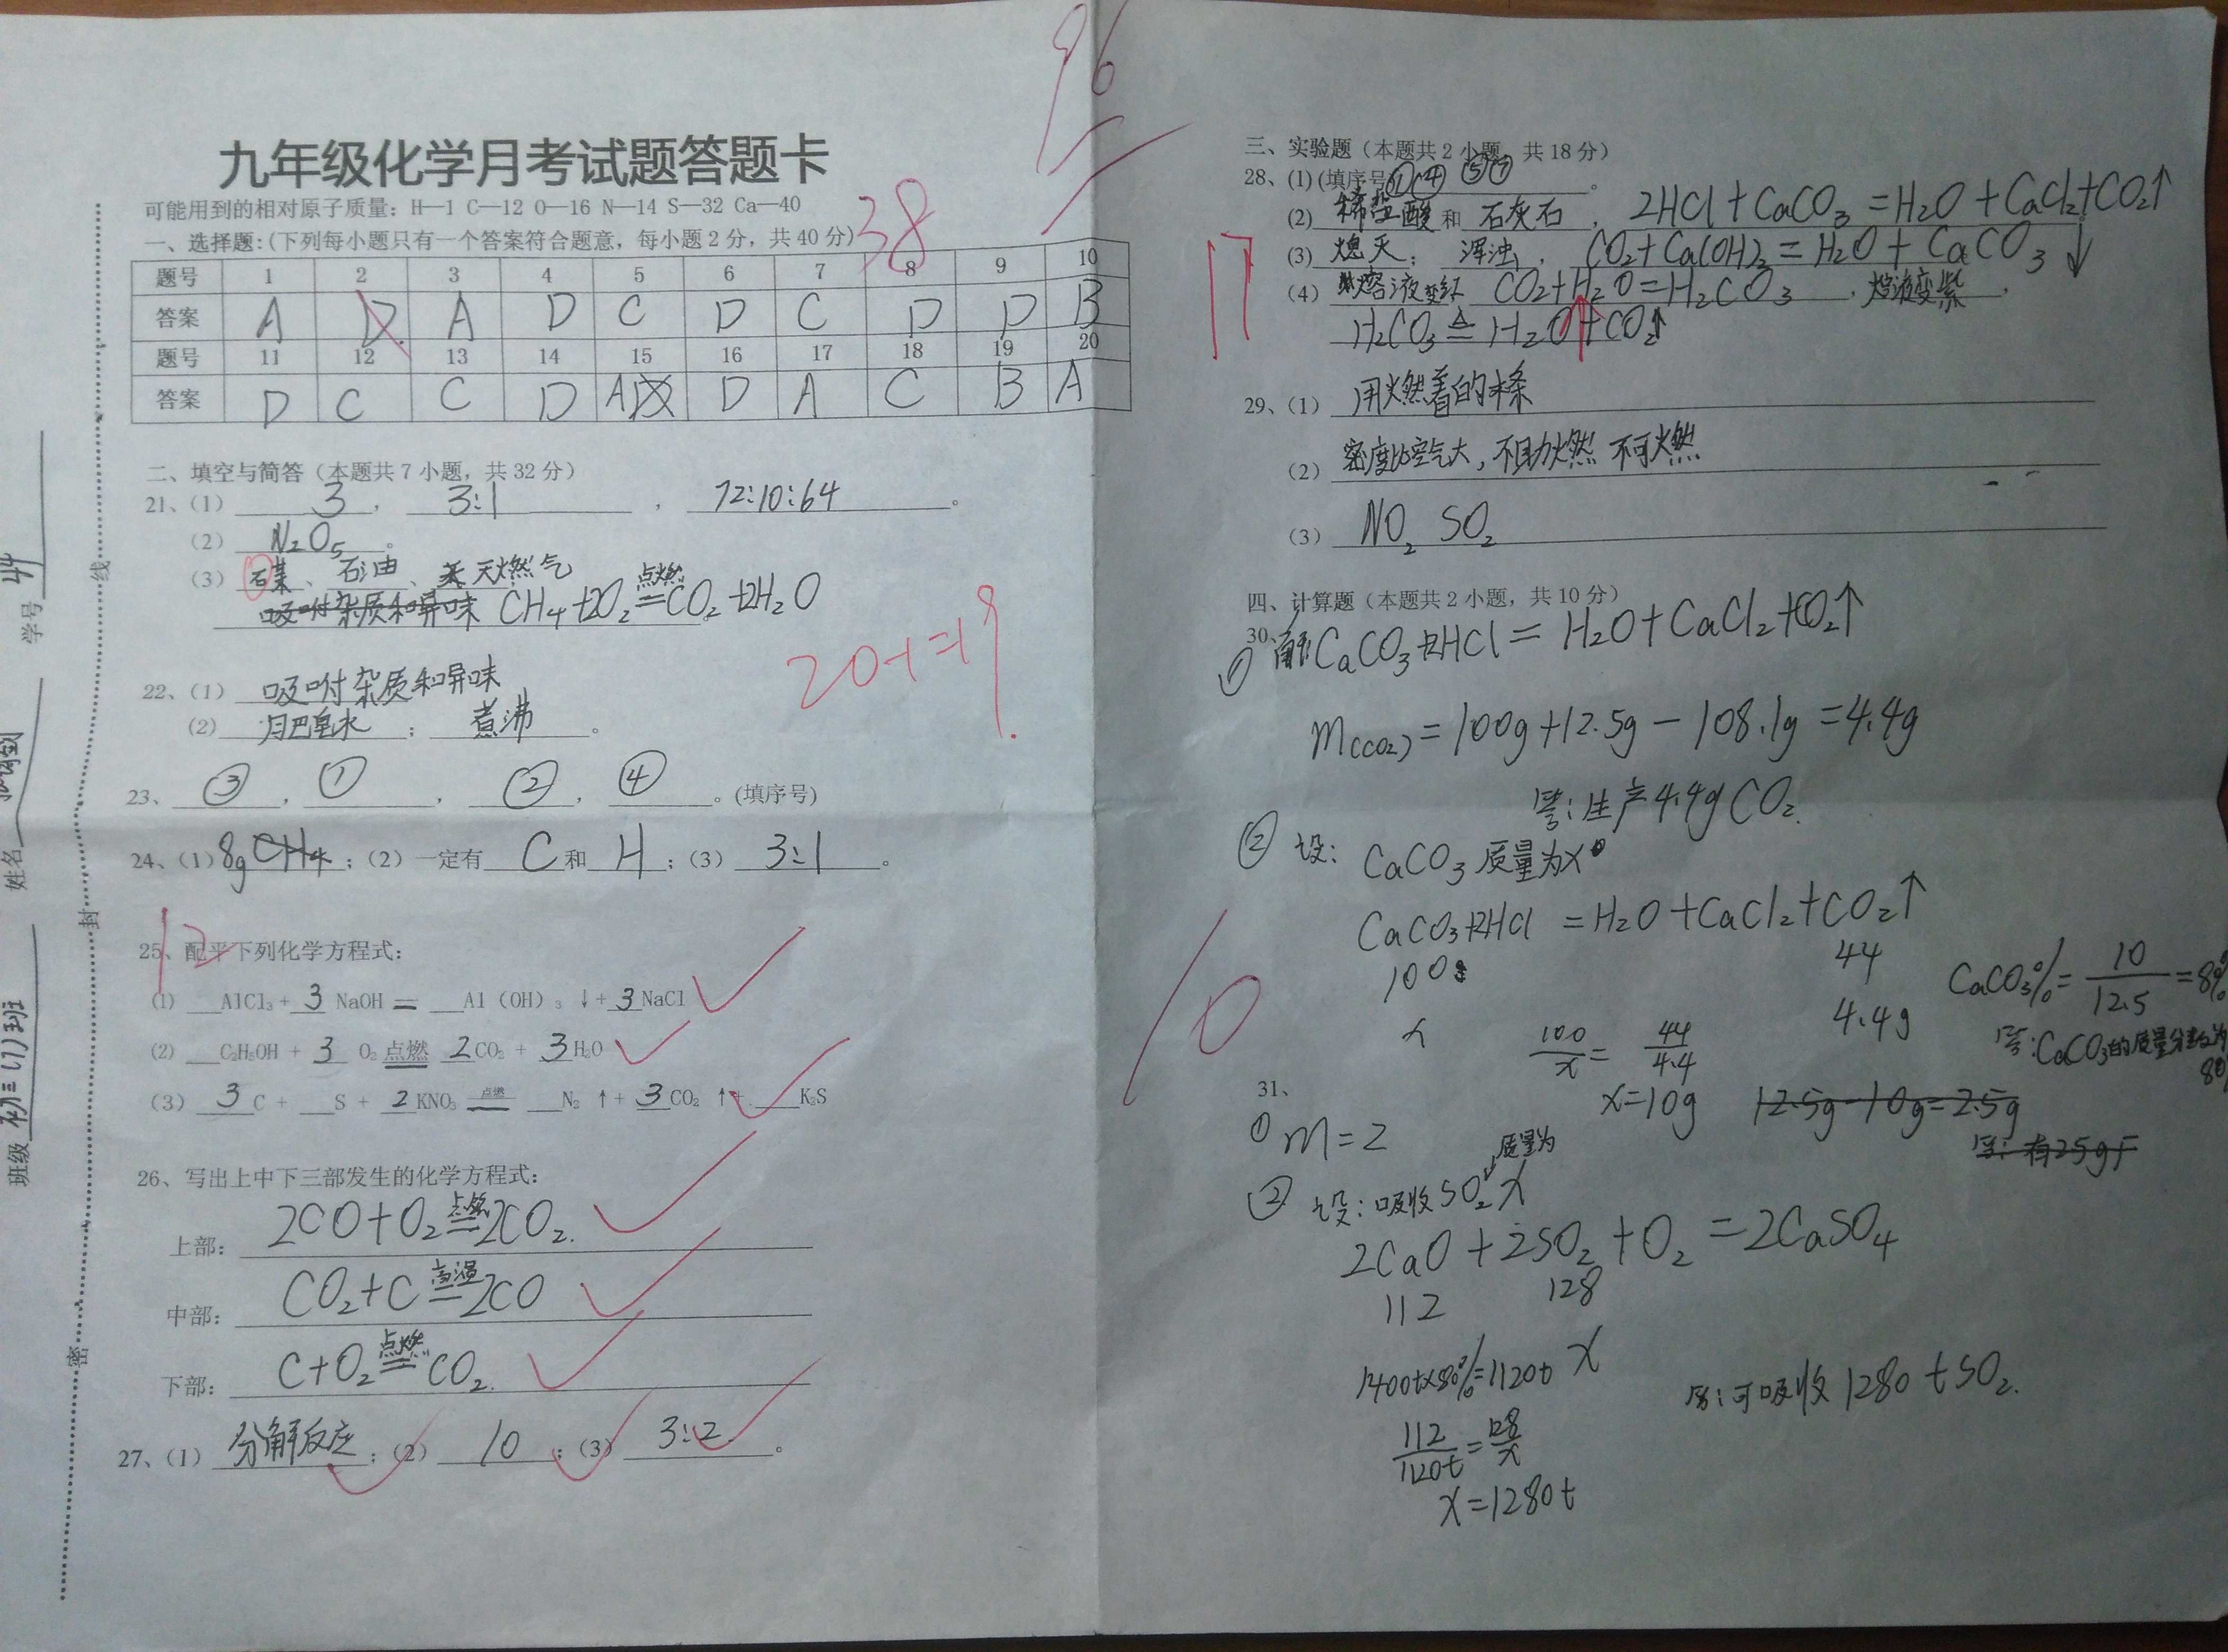 96
九年级化学月考试题答题卡
可能用到的相对原子质量：H—1 C—12 O—16 N—14 S—32 Ca—40
一、选择题:(下列每小题只有一个答案符合题意，每小题2分，共40分)
38
题号 1 2 3 4 5 6 7 8 9 10
答案 A D A D C D C D D B
题号 11 12 13 14 15 16 17 18 19 20
答案 D C C D A D A C B A
二、填空与简答（本题共7小题，共32分）
21、（1） 3 ， 3:1 ， 72:10:64 。
（2） N₂O₅ 。
（3） 石某 、 石油 、 天燃气
CH₄+2O₂ 点燃 = CO₂+2H₂O
20-1=19
22、（1） 吸咐杂质和异味
（2） 肥皂水 ； 煮沸 。
23、 ③ ， ① ， ② ， ④ 。(填序号)
24、（1） 8g ；（2）一定有 C 和 H ；（3） 3:1 。
12
25、配平下列化学方程式：
(1) AlCl₃ + 3 NaOH = Al（OH）₃ ↓+ 3 NaCl
(2) C₂H₅OH + 3 O₂ 点燃 2 CO₂ + 3 H₂O
（3） 3 C + S + 2 KNO₃ 点燃 N₂ ↑+ 3 CO₂ ↑+ K₂S
26、写出上中下三部发生的化学方程式：
上部： 2CO+O₂ 点燃 = 2CO₂.
中部： CO₂+C 高温 = 2CO
下部： C+O₂ 点燃 = CO₂.
27、（1） 分解反应 ；（2） 10 ；（3） 3:2 。
班级 初三(7)班
姓名
学号 44
密
封
线
三、实验题（本题共2小题，共18分）
17
28、(1)(填序号) ①④ ⑤⑦ 。
(2) 稀盐酸 和 石灰石 ， 2HCl+CaCO₃=H₂O+CaCl₂+CO₂↑
(3) 熄灭 ； 浑浊 ， CO₂+Ca(OH)₂=H₂O+CaCO₃↓
（4） 溶液变红 CO₂+H₂O=H₂CO₃ ，溶液变紫 ，
H₂CO₃ △= H₂O+CO₂↑
29、（1） 用燃着的木条
（2） 密度比空气大，不助燃 不可燃
（3） NO₂ SO₂
四、计算题（本题共2小题，共10分）
10
30、
① 解:CaCO₃+2HCl=H₂O+CaCl₂+CO₂↑
m(CO₂)=100g+12.5g-108.1g=4.4g
答:生产4.4gCO₂.
② 设: CaCO₃质量为x
CaCO₃+2HCl=H₂O+CaCl₂+CO₂↑
100 44
x 4.4g
100/x=44/4.4
x=10g
12.5g-10g=2.5g
CaCO₃%=10/12.5=8%
答:CaCO₃的质量分数为80
31、
① m=2
② 设:吸收SO₂质量为x
2CaO+2SO₂+O₂=2CaSO₄
112 128
1400t×80%=1120t x
112/1120t=128/x
x=1280t
答:可吸收1280tSO₂.